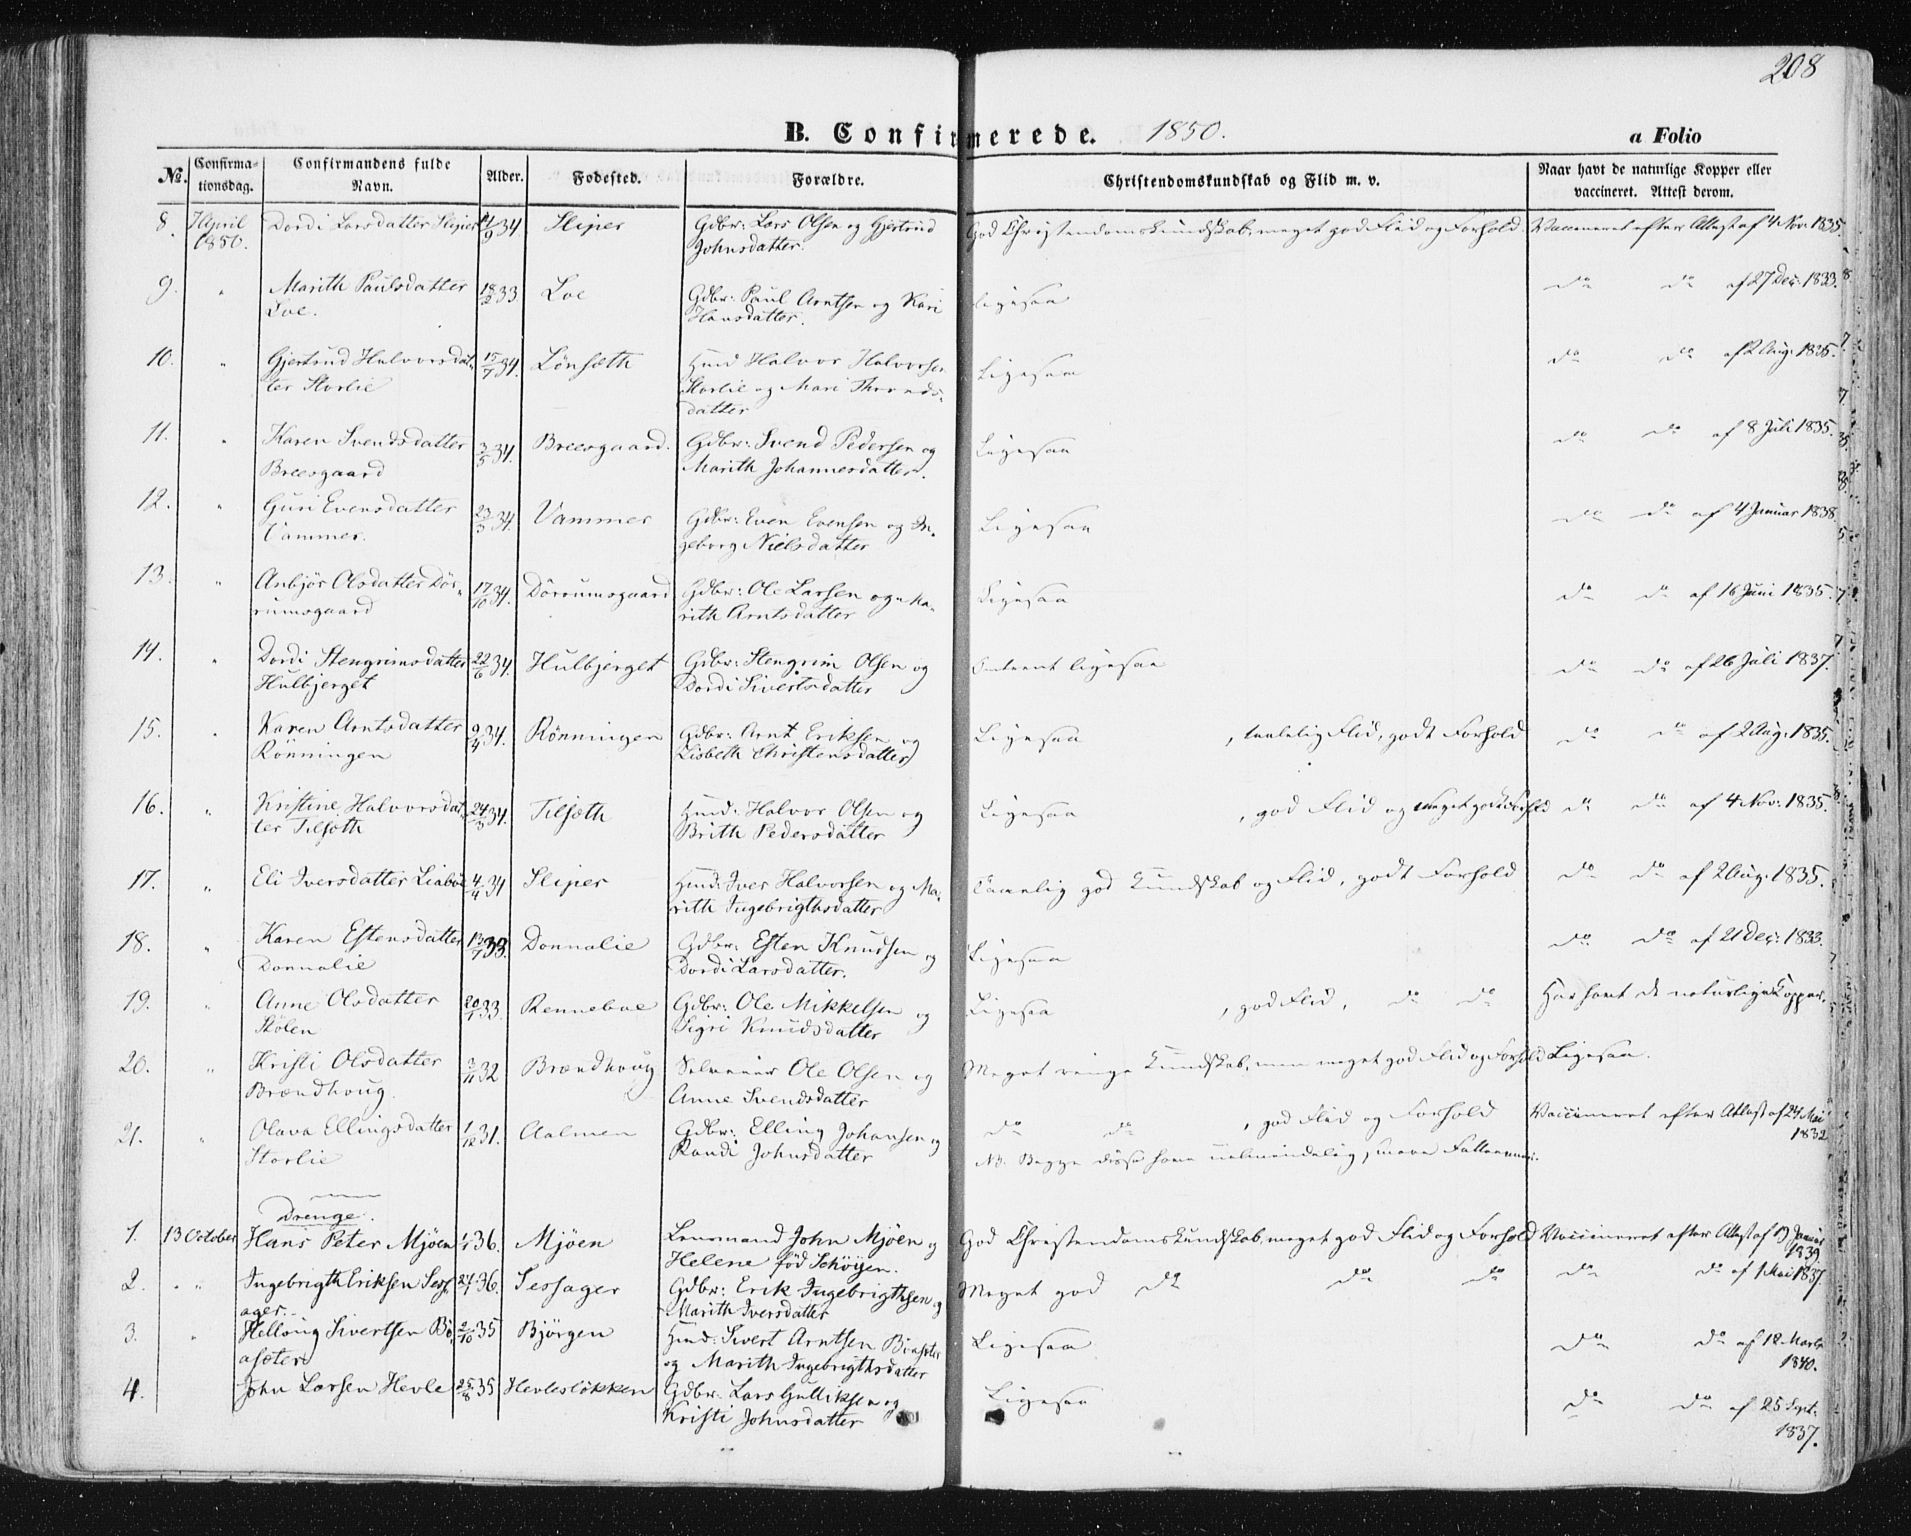 208
B. Confirmerede. 1850.
a Folio
No.
Confirmationsdag.
Confirmandens fulde Navn.
Alder.
Fodested.
Forældre.
Christendomskundskab og Flid m. v.
Naar havt de naturlige Kopper eller vaccineret. Attest derom.
8. 7 April Dordi Larsdatter Sliper 9 34 Sliper Gdbr: Lars Olsen og Gjertrud God Christendomskundskab, meget god Flid og Forhold. Vaccineret efter Attest af 4 Nov. 1835
1850. Johnsdatter.
9. " Marith Paulsdatter 18/2 33 Loe Gdbr: Paul Arntsen og Kari Ligesaa do do af 27 Dec: 1833.
Loe. Hansdatter.
10. " Gjertrud Halvorsdat- 15/7 34. Lönsæth Hmd Halvor Halvorsen Ligesaa do do af 2 Aug: 1835.
ter Storlie Storlie og Mari Thor
datter
11. " Karen Svendsdatter 3/5 34. Breesgaard. Gdbr: Svend Pedersen og Ligesaa do do af 8 Juli 1835.
Breesgaard Marith Johannesdatter.
12. " Guri Evensdatter 23/3 34. Vammer Gdbr: Even Evensen og In- Ligesaa do do af 4 Januar 1838
Vammer. geborg Nielsdatter
13. " Anbjör Olsdatter Dör- 17/10 34. Dörrumsgaard Gdbr: Ole Larsen og Ma- Ligesaa do do af 16 Juni 1835.
rumsgaard rith Arntsdatter
14. " Dordi Stengrimsdatter 22/6 34. Hulbjerget Gdbr: Stengrim Olsen og Omtrent ligesaa do do af 26 Juli 1837.
Hulbjerget Dordi Sivertsdatter
15. " Karen Arntsdatter 9/4 34. Rönningen Gdbr: Arnt Eriksen og Ligesaa , taalelig Flid, godt Forhold do do af 2 Aug: 1835.
Rönningen Lisbeth Christensdatter
16. " Kristine Halvorsdat- 24/3 34. Tilsæth Hmd: Halvor Olsen og Ligesaa , god Flid og meget godt Forhold do do af 4 Nov: 1835.
ter Tilsæth Brith Pedersdatter
17. " Eli Iversdatter Liaböe 4/4 34 Sliper Hmd: Iver Halvorsen og Ma- Temmelig god Kundskab og Flid, godt Forhold do do af 2 Aug: 1835.
rith Ingebrigthsdatter
18. " Karen Estensdatter 13/7 33. Donnalie Gdbr: Esten Knudsen og Ligesaa do do af 21 Dec: 1833.
Donnalie Dordi Larsdatter.
19. " Anne Olsdatter 20/1 33. Renneboe Gdbr: Ole Mikkelsen og Ligesaa , god Flid, do do Har havt de naturlige Kopper.
Stölen Sigri Knudsdatter
20. " Kristi Olsdatter 3/11 32 Brændhoug Selveier Ole Olsen og Meget ringe Kundskab, men meget god Flid og Forhold Ligesaa.
Brændhoug. Anne Svendsdatter
21. " Olava Ellingsdatter 1/12 31. Aalmen Gdbr: Elling Johansen og do do , god Flid og Forhold Vaccineret efter Attest af 24 Mai 1832
Storlie Randi Johnsdatter NB. Begge disse have ualmindelig svare Fatteevner.
Drenge.
1. 13 October Hans Peter Mjöen 36. Mjöen Lensmand John Mjöen og God Christendomskundskab, meget god Flid og Forhold Vaccineret efter Attest af Januar 1839
Helene fød Schöyen.
2. " " Ingebrigth Eriksen Sess- 36. Sessager Gdbr: Erik Ingebrigthsen og Meget god do do do do do af 1 Mai 1837
ager. Marith Iversdatter
3. " Helloug Sivertsen Bö- 2/10 35 Björgen Hmd: Sivert Arntsen Böasæter Ligesaa do do af 12 Marts 1840.
asæter og Marith Ingebrigthsdatter
4. John Larsen Hevle 25/8 35 Hevleslökken Gdbr: Lars Gulliksen og Ligesaa do do af 25 Sept. 1837.
Kristi Johnsdatter